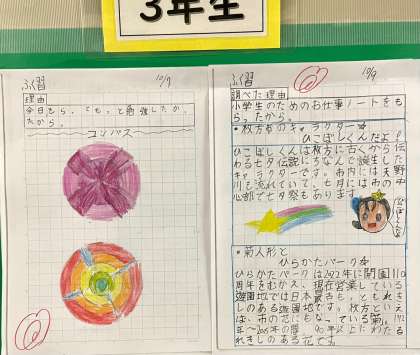 3年生
ふく習
10/9
理由
今日から、もっと勉強したか
たから。
コンパス
ふく習
10/9
調べた理由
小学生のためのお仕事ノートをも
らったから。
・枚方市のキャラクター☆
ひこぼしくんだよ!
ひこぼしくんは枚方に古くから伝
わる七夕伝説にちなんで誕生した
キャラクターです。市内には天野
川も流れていて、七月には市の中
心部で七夕祭もあります。
ひこぼしくん
・菊人形と
ひらかたパーク☆
ひらかたパークは2022年に開園110
周年をむかえ、現在営業している
遊園地では日本最古も、ともれきし
のある遊園地です。枚方といえ
ば、市の花にもなっている菊。